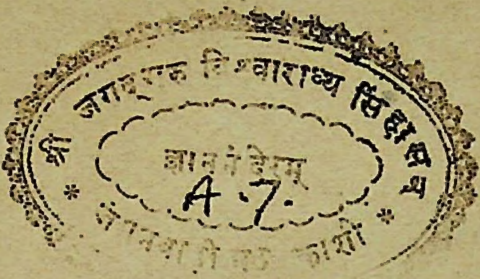 श्री जगद्गुरू विश्वाराध्य सिंहासन
ज्ञान मंदिरम्
A.7.
जंगमवाडी मठ काशी